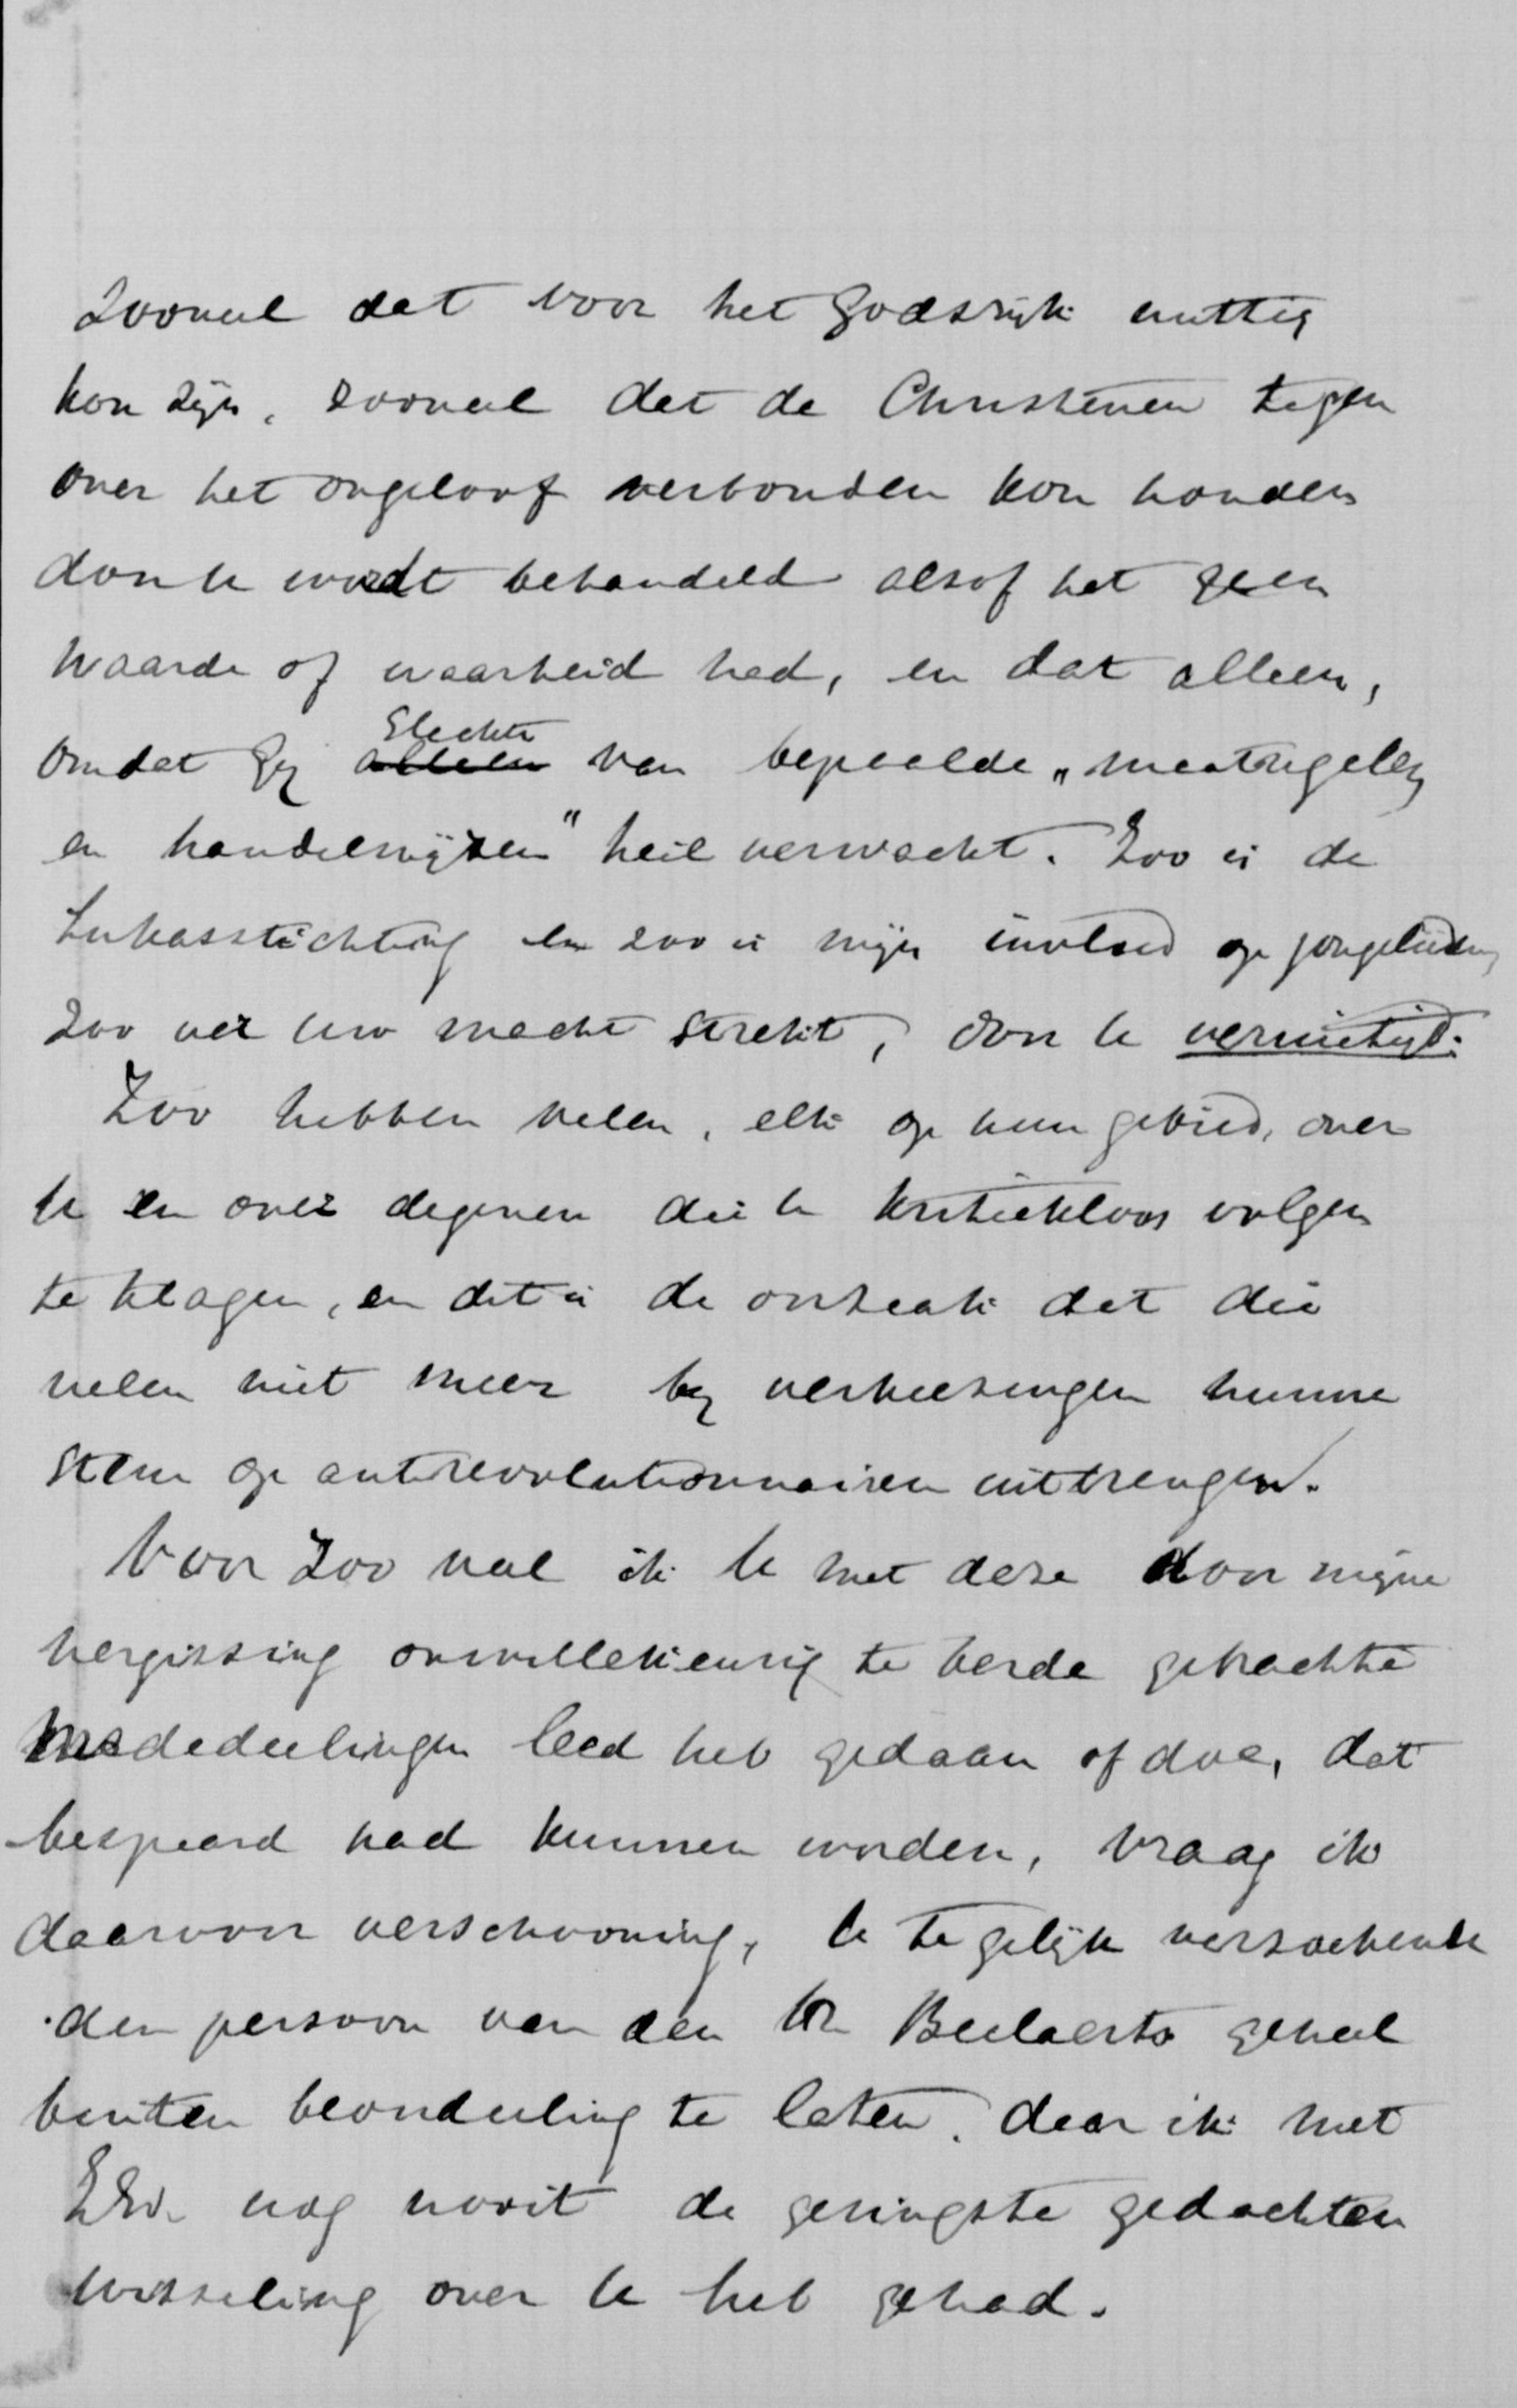 Zooveel dat voor het Godsrijk nuttig
kon zijn, zooveel dat de Christenen tegen
over het ongeloof verbonden kon houden
door U wordt behandeld alsof het geen
waarde of waarheid had, en dat alleen,
omdat Gij alleen slechts van bepaalde „maatregelen
en handelwijzen" heil verwacht. Zoo is de
Lukasstichting en zoo is mijn invloed op jongelieden,
zoo ver uw macht strekt, door U vernietigd.
Zoo hebben velen, elk op hun gebied, over
U en over degenen die U kritiekloos volgen
te klagen, en dit is de oorzaak dat die
velen niet meer bij verkiezingen hunne
stem op antirevolutionnairen uitbrengen.
Voor zoo veel ik U met deze door mijne
vergissing onwillekeurig te berde gebrachte
mededeelingen leed heb gedaan of doe, dat
bespaard had kunnen worden, vraag ik
daarvoor verschooning, U tegelijk verzoekende
den persoon van den Hr Beelaerts geheel
buiten beoordeeling te laten, daar ik met
ZEd. nog nooit de geringste gedachten
wisseling over U heb gehad.